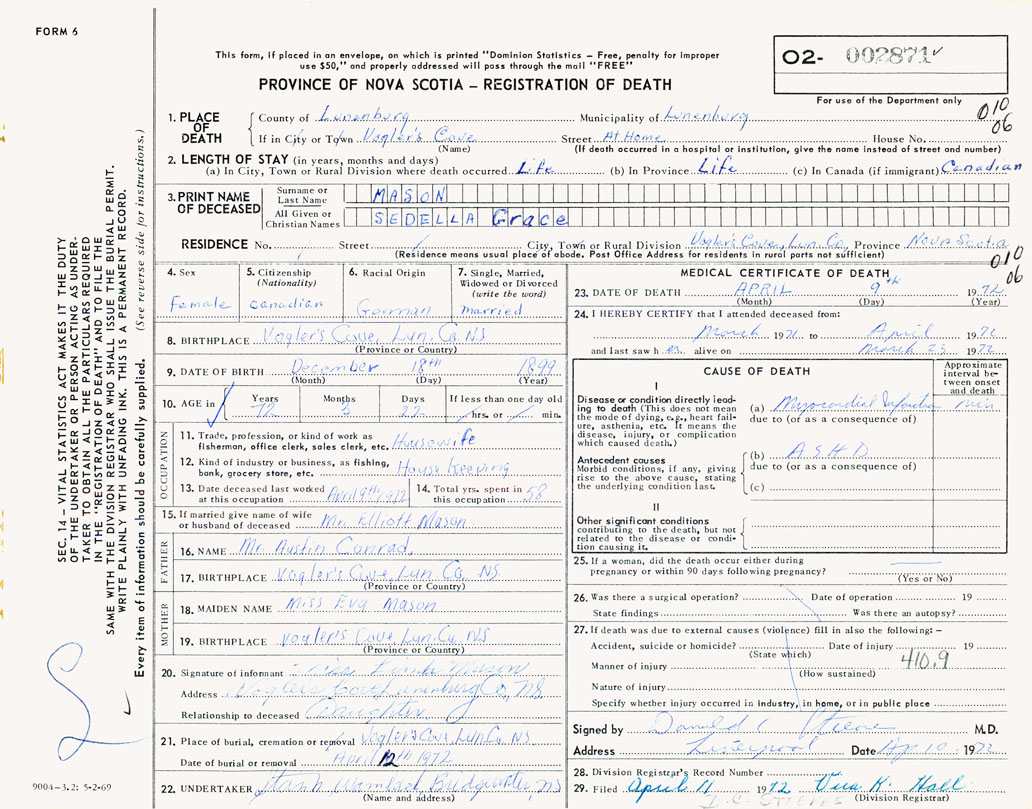 FORM 6
This form, if placed in an envelope, on which is printed "Dominion Statistics – Free, penalty for improper
use $50," and properly addressed will pass through the mail "FREE"
PROVINCE OF NOVA SCOTIA – REGISTRATION OF DEATH
O2- 002871
For use of the Department only
010
06
SEC. 14 – VITAL STATISTICS ACT MAKES IT THE DUTY
OF THE UNDERTAKER OR PERSON ACTING AS UNDER-
TAKER TO OBTAIN ALL THE PARTICULARS REQUIRED
IN THE "REGISTRATION OF DEATH" AND TO FILE THE
SAME WITH THE DIVISION REGISTRAR WHO SHALL ISSUE THE BURIAL PERMIT.
WRITE PLAINLY WITH UNFADING INK. THIS IS A PERMANENT RECORD.
Every item of information should be carefully supplied. (See reverse side for instructions.)
1. PLACE OF DEATH
County of Lunenburg Municipality of Lunenburg
If in City or Town Vogler's Cove Street At Home House No.
(Name) (If death occurred in a hospital or institution, give the name instead of street and number)
2. LENGTH OF STAY (in years, months and days)
(a) In City, Town or Rural Division where death occurred Life (b) In Province Life (c) In Canada (if immigrant) Canadian
3. PRINT NAME OF DECEASED
Surname or Last Name MASON
All Given or Christian Names SEDELLA Grace
RESIDENCE No. Street City, Town or Rural Division Vogler's Cove, Lun. Co. Province Nova Scotia
(Residence means usual place of abode. Post Office Address for residents in rural parts not sufficient)
010
06
4. Sex female
5. Citizenship (Nationality) Canadian
6. Racial Origin German
7. Single, Married, Widowed or Divorced (write the word) married
8. BIRTHPLACE Vogler's Cove, Lun. Co. NS
(Province or Country)
9. DATE OF BIRTH December 18th 1899
(Month) (Day) (Year)
10. AGE in Years 72 Months 3 Days 22 If less than one day old hrs. or min.
OCCUPATION
11. Trade, profession, or kind of work as fisherman, office clerk, sales clerk, etc. Housewife
12. Kind of industry or business, as fishing, bank, grocery store, etc. House Keeping
13. Date deceased last worked at this occupation April 9th 1972
14. Total yrs. spent in this occupation 58
15. If married give name of wife or husband of deceased Mr. Elliott Mason
FATHER
16. NAME Mr. Austin Conrad
17. BIRTHPLACE Vogler's Cove Lun. Co. NS
(Province or Country)
MOTHER
18. MAIDEN NAME Miss Eva Mason
19. BIRTHPLACE Vogler's Cove, Lun. Co. NS
(Province or Country)
20. Signature of informant Mason
Address Vogler's Cove Lunenburg Co, NS
Relationship to deceased Daughter
21. Place of burial, cremation or removal Vogler's Cove, Lun Co. NS.
Date of burial or removal April 12th 1972
22. UNDERTAKER Bridgewater, NS
(Name and address)
9004-3.2: 5-2-69
MEDICAL CERTIFICATE OF DEATH
23. DATE OF DEATH APRIL 9th 1972
(Month) (Day) (Year)
24. I HEREBY CERTIFY that I attended deceased from:
March 1971 to April 1972
and last saw her alive on March 23 1972
CAUSE OF DEATH
Approximate interval between onset and death
I
Disease or condition directly leading to death (This does not mean the mode of dying, e.g., heart failure, asthenia, etc. It means the disease, injury, or complication which caused death.)
(a) Myocardial Infarction min
due to (or as a consequence of)
Antecedent causes
Morbid conditions, if any, giving rise to the above cause, stating the underlying condition last.
(b) ASHD
due to (or as a consequence of)
(c)
II
Other significant conditions contributing to the death, but not related to the disease or condition causing it.
25. If a woman, did the death occur either during pregnancy or within 90 days following pregnancy?
(Yes or No)
26. Was there a surgical operation? Date of operation 19
State findings Was there an autopsy?
27. If death was due to external causes (violence) fill in also the following: –
Accident, suicide or homicide? Date of injury 19
(State which)
Manner of injury 410.9
(How sustained)
Nature of injury
Specify whether injury occurred in industry, in home, or in public place
Signed by Donald C M.D.
Address Liverpool Date Ap 10 1972
28. Division Registrar's Record Number
29. Filed April 11 1972 Vera K. Hall
(Division Registrar)